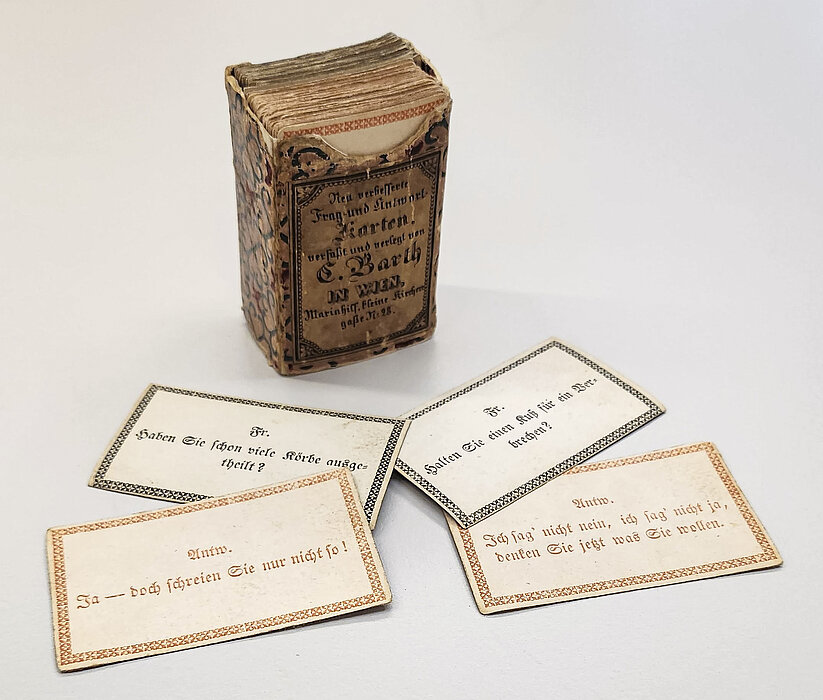 Neu verbesserte
Frag-und Antwort-
Karten.
verfaßt und verlegt von
C. Barth
IN WIEN,
Mariahilf, kleine Kirchen
gaße Nr 28.
Fr.
Haben Sie schon viele Körbe ausge-
theilt?
Fr.
Halten Sie einen Kuß für ein Ver-
brechen?
Antw.
Ja — doch schreien Sie nur nicht so!
Antw.
Ich sag' nicht nein, ich sag' nicht ja,
denken Sie jetzt was Sie wollen.